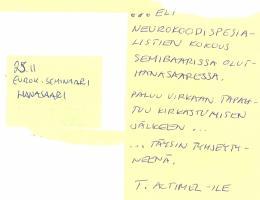 25.11
EUROK. SEMINAARI
HANASAARI
... ELI
NEUROKOODISPESIA-
LISTIEN KOKOUS
SEMIBAARISSA OLUT-
HANASAARESSA.
PALUU VIRKAAN TAPAH-
TUU KIRKASTUMISEN
JÄLKEEN ...
... TÄYSIN TYHJEYTY-
NEENÄ.
T. ALTIMEL-ILE